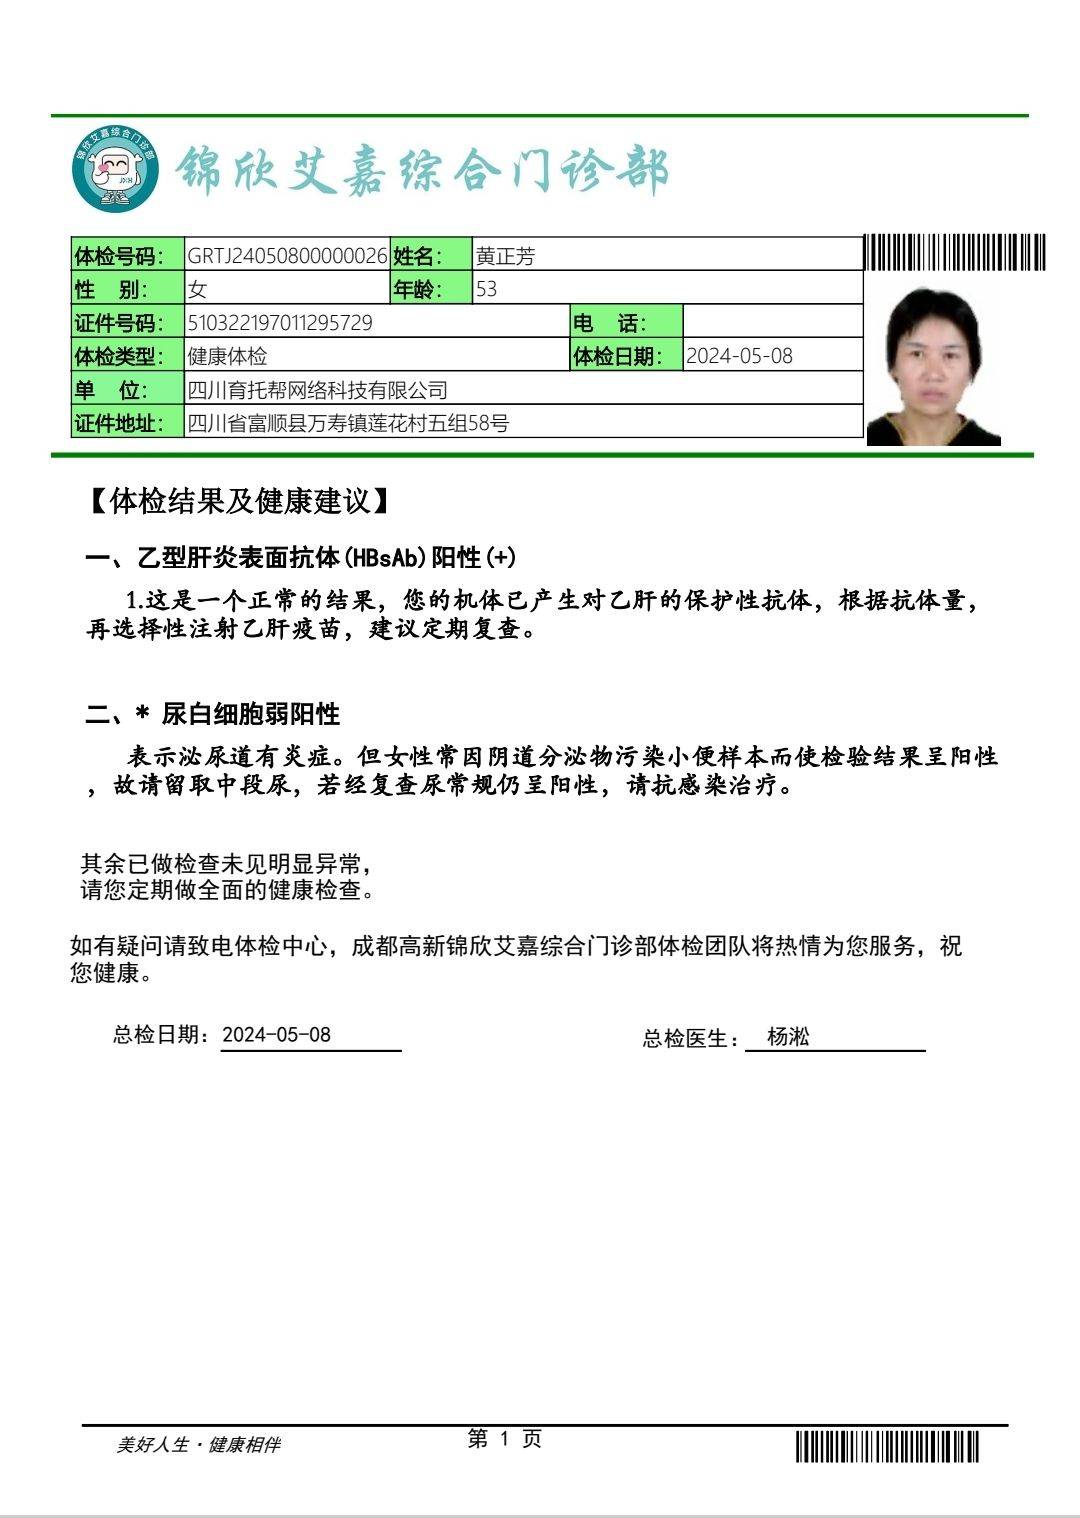 锦欣艾嘉综合门诊部
JXIH
锦欣艾嘉综合门诊部
体检号码： GRTJ24050800000026 姓名： 黄正芳
性 别： 女 年龄： 53
证件号码： 510322197011295729 电 话：
体检类型： 健康体检 体检日期： 2024-05-08
单 位： 四川育托帮网络科技有限公司
证件地址： 四川省富顺县万寿镇莲花村五组58号
【体检结果及健康建议】
一、乙型肝炎表面抗体(HBsAb)阳性(+)
1.这是一个正常的结果，您的机体已产生对乙肝的保护性抗体，根据抗体量，
再选择性注射乙肝疫苗，建议定期复查。
二、* 尿白细胞弱阳性
表示泌尿道有炎症。但女性常因阴道分泌物污染小便样本而使检验结果呈阳性
，故请留取中段尿，若经复查尿常规仍呈阳性，请抗感染治疗。
其余已做检查未见明显异常，
请您定期做全面的健康检查。
如有疑问请致电体检中心，成都高新锦欣艾嘉综合门诊部体检团队将热情为您服务，祝
您健康。
总检日期： 2024-05-08 总检医生： 杨淞
美好人生·健康相伴 第 1 页